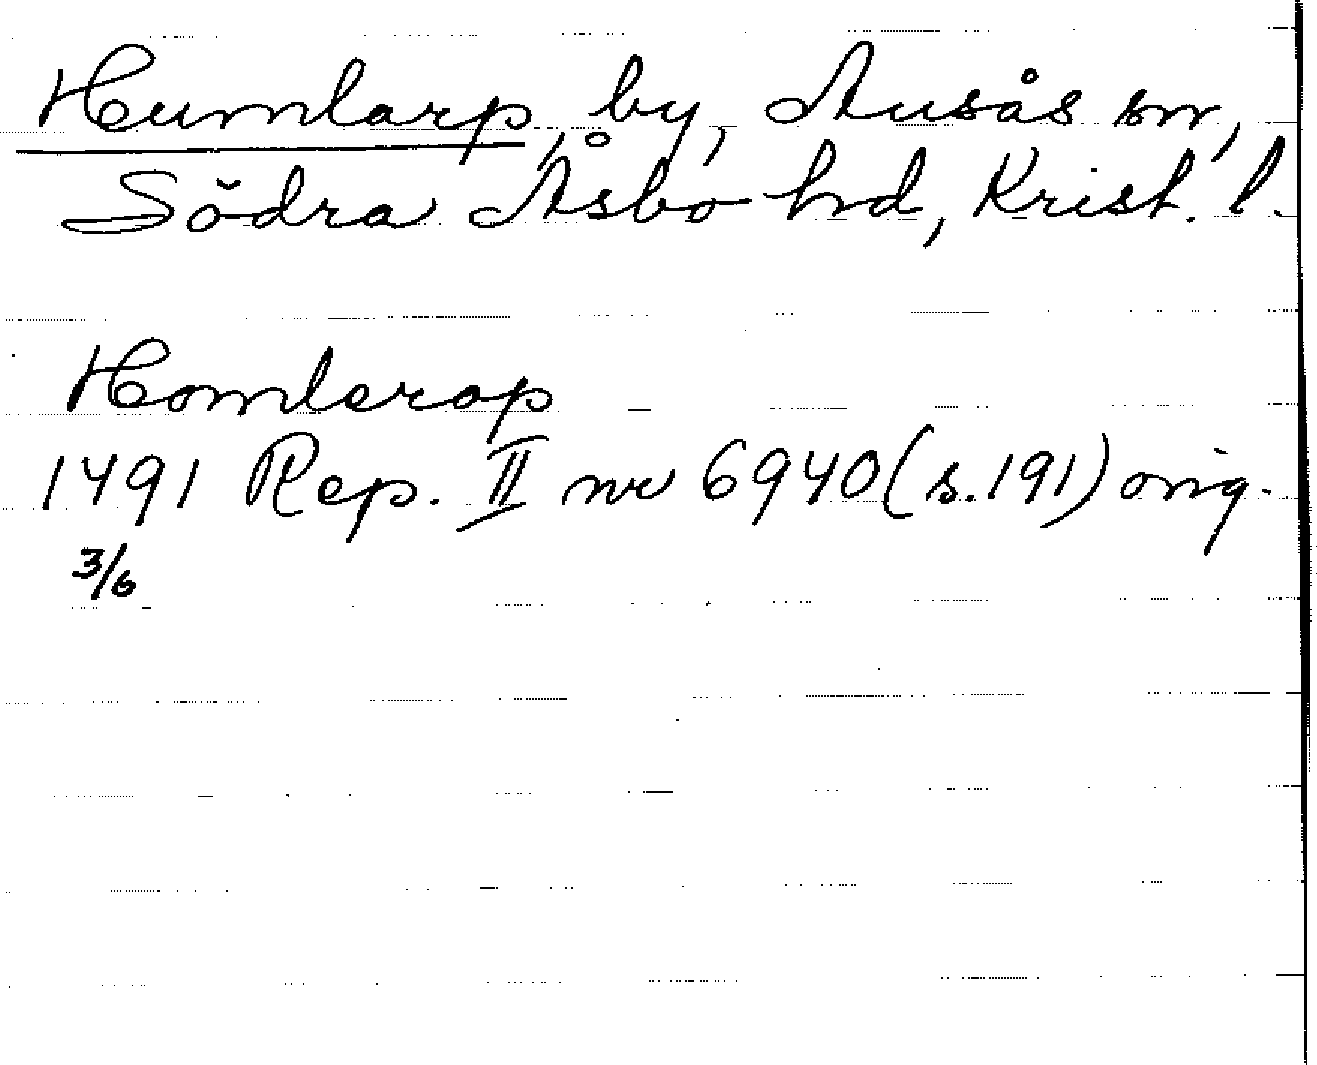 Humlarp, by, Ausås sn,
Södra Åsbo hd, Krist. l.
Homlerop
1491 Rep. II nr 6940 (s. 191) orig.
3/6